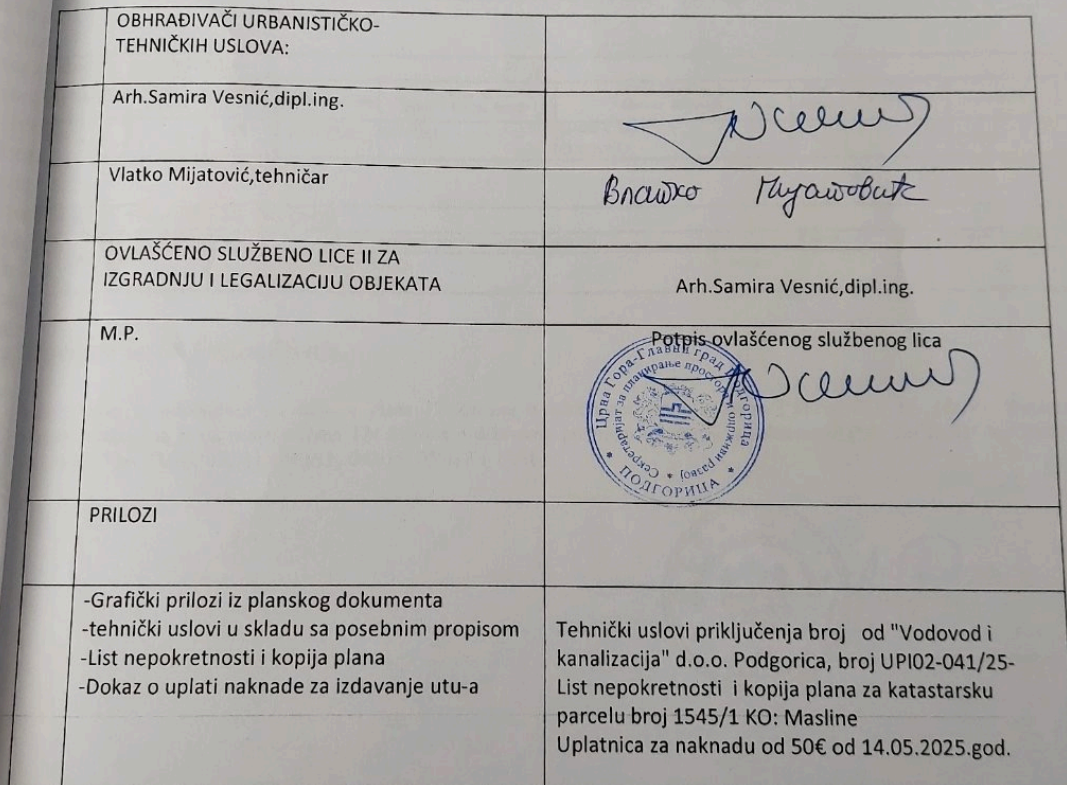 OBHRAĐIVAČI URBANISTIČKO-
TEHNIČKIH USLOVA:
Arh.Samira Vesnić,dipl.ing.
Vlatko Mijatović,tehničar
Влатко Мијатовић
OVLAŠĆENO SLUŽBENO LICE II ZA
IZGRADNJU I LEGALIZACIJU OBJEKATA
Arh.Samira Vesnić,dipl.ing.
M.P.
Potpis ovlašćenog službenog lica
Црна Гора-Главни град Подгорица
Секретаријат за планирање простора и одрживи развој
ПОДГОРИЦА
PRILOZI
-Grafički prilozi iz planskog dokumenta
-tehnički uslovi u skladu sa posebnim propisom
-List nepokretnosti i kopija plana
-Dokaz o uplati naknade za izdavanje utu-a
Tehnički uslovi priključenja broj od "Vodovod i
kanalizacija" d.o.o. Podgorica, broj UPI02-041/25-
List nepokretnosti i kopija plana za katastarsku
parcelu broj 1545/1 KO: Masline
Uplatnica za naknadu od 50€ od 14.05.2025.god.